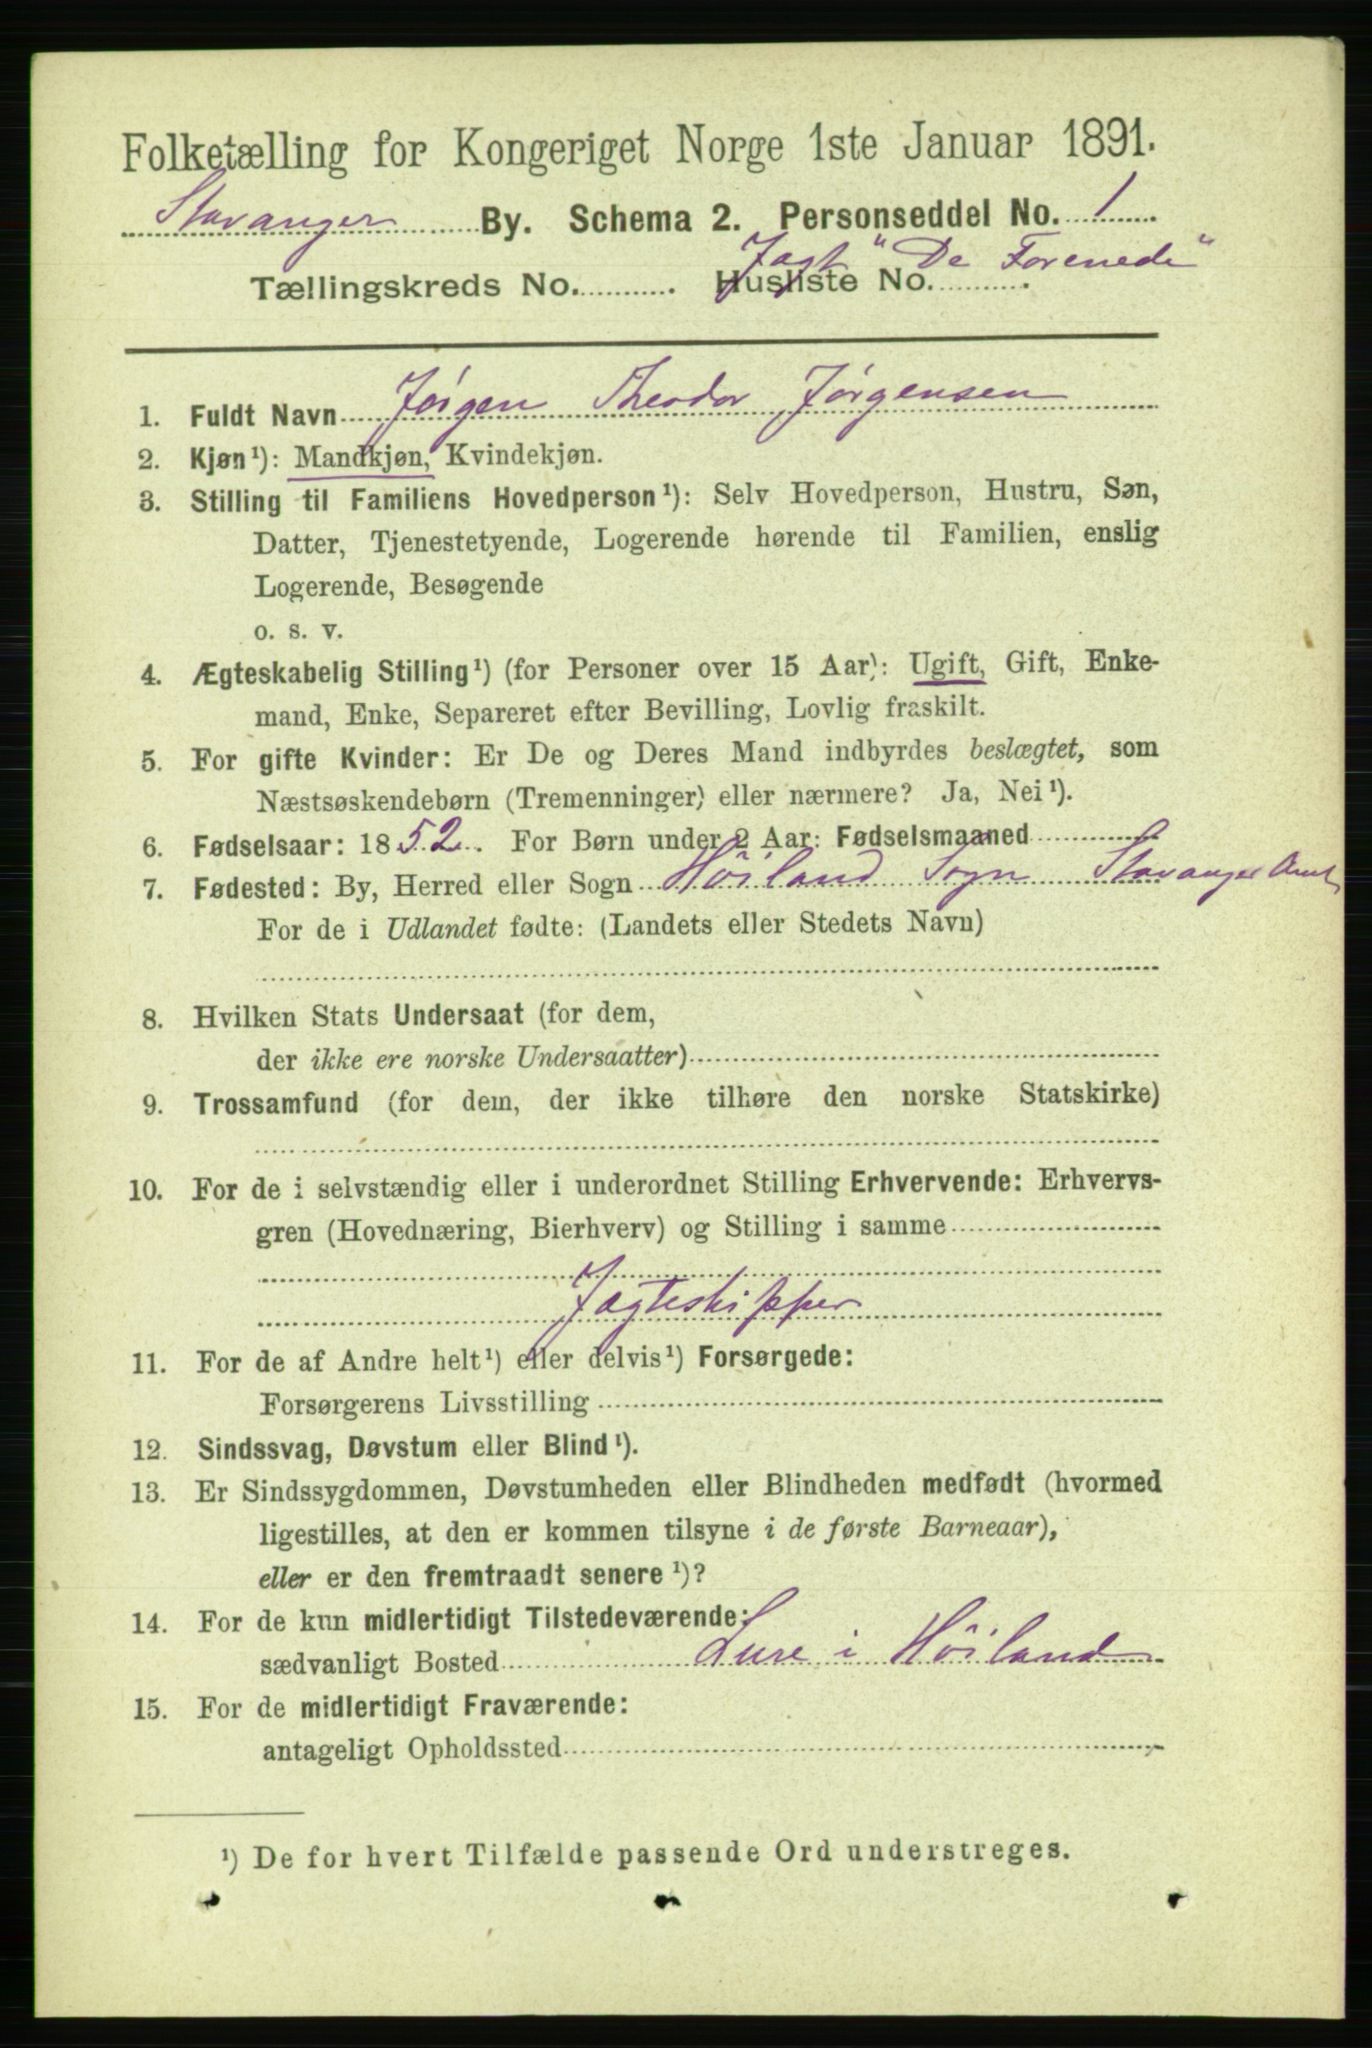 Folketælling for Kongeriget Norge 1ste Januar 1891.
Stavanger By. Schema 2. Personseddel No. 1
Jagt "De Forenede"
Tællingskreds No. . Husliste No. .
1. Fuldt Navn Jørgen Theodor Jørgensen
2. Kjøn¹): Mandkjøn, Kvindekjøn.
3. Stilling til Familiens Hovedperson¹): Selv Hovedperson, Hustru, Søn,
Datter, Tjenestetyende, Logerende hørende til Familien, enslig
Logerende, Besøgende
o. s. v.
4. Ægteskabelig Stilling¹) (for Personer over 15 Aar): Ugift, Gift, Enke-
mand, Enke, Separeret efter Bevilling, Lovlig fraskilt.
5. For gifte Kvinder: Er De og Deres Mand indbyrdes beslægtet, som
Næstsøskendebørn (Tremenninger) eller nærmere? Ja, Nei¹).
6. Fødselsaar: 1852. For Børn under 2 Aar: Fødselsmaaned
7. Fødested: By, Herred eller Sogn Höiland Sogn Stavanger Amt
For de i Udlandet fødte: (Landets eller Stedets Navn)
8. Hvilken Stats Undersaat (for dem,
der ikke ere norske Undersaatter)
9. Trossamfund (for dem, der ikke tilhøre den norske Statskirke)
10. For de i selvstændig eller i underordnet Stilling Erhvervende: Erhvervs-
gren (Hovednæring, Bierhverv) og Stilling i samme
Jagteskipper
11. For de af Andre helt¹) eller delvis¹) Forsørgede:
Forsørgerens Livsstilling
12. Sindssvag, Døvstum eller Blind¹).
13. Er Sindssygdommen, Døvstumheden eller Blindheden medfødt (hvormed
ligestilles, at den er kommen tilsyne i de første Barneaar),
eller er den fremtraadt senere¹)?
14. For de kun midlertidigt Tilstedeværende:
sædvanligt Bosted Lure i Höiland
15. For de midlertidigt Fraværende:
antageligt Opholdssted
¹) De for hvert Tilfælde passende Ord understreges.